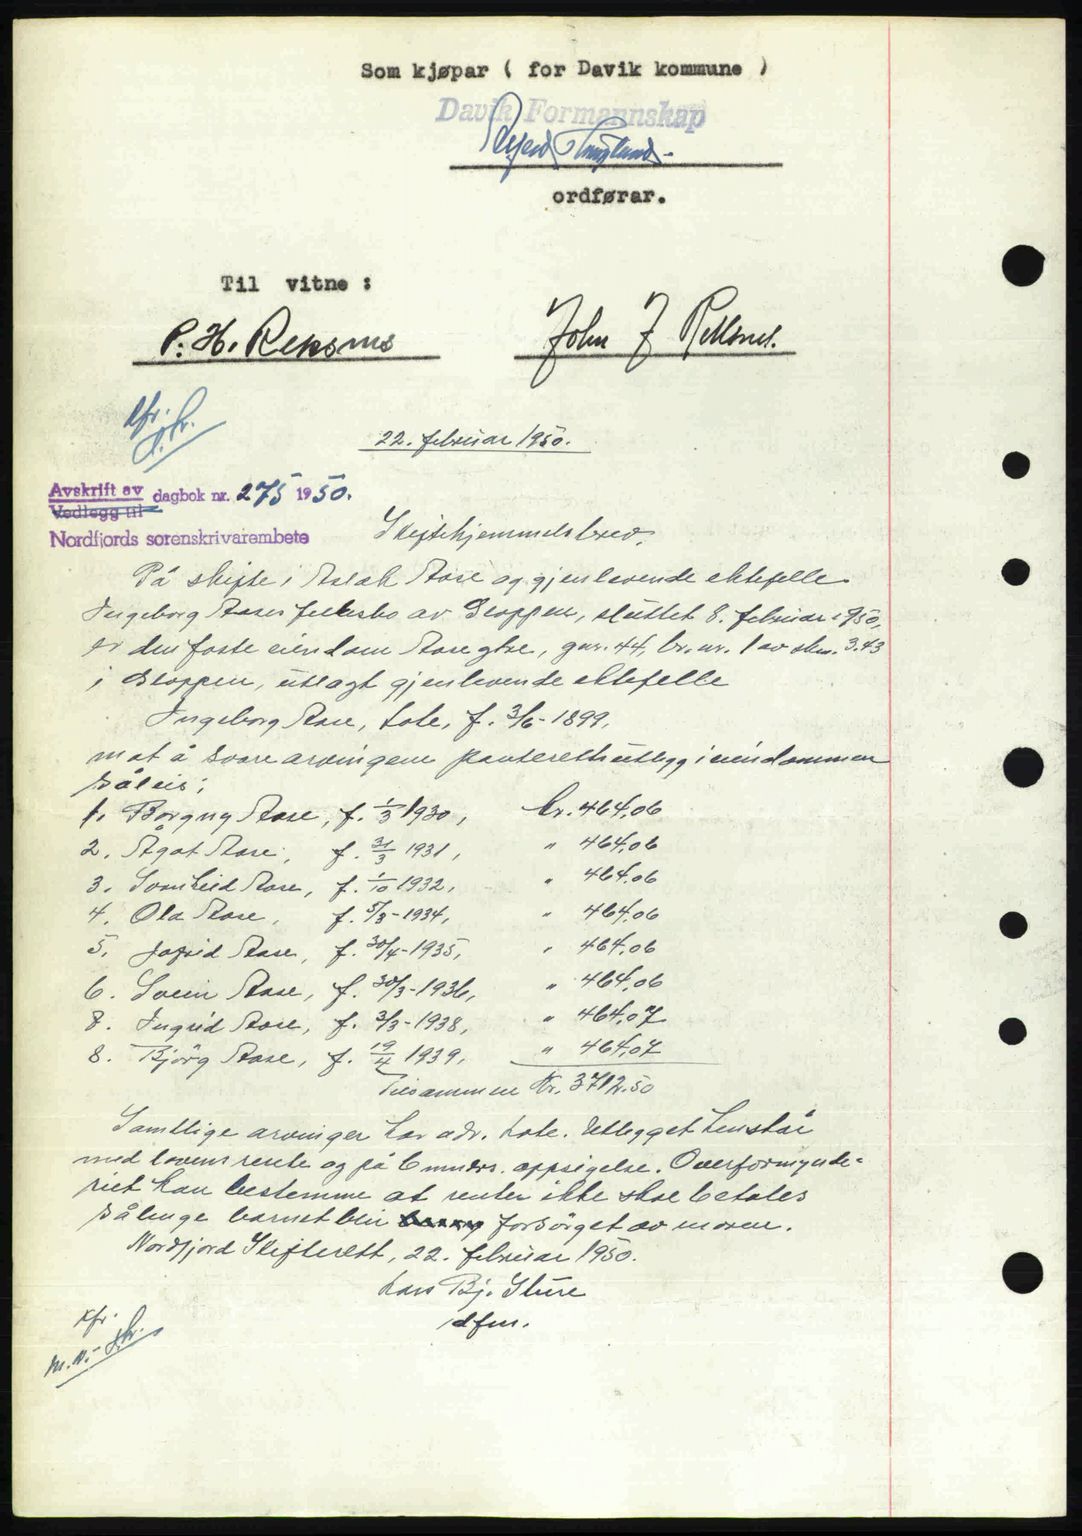 Som kjøpar ( for Davik kommune )
Davik Formannskap
ordførar.
Til vitne :
P. H. Reksnes
John J Reksnes.
Kfr.
22. februar 1950.
Avskrift av
Vedlegg til
dagbok nr. 275 1950.
Nordfjords sorenskrivarembete
Skiftehjemmelsbrev.
På skifte i Aslak Aase og gjenlevende ektefelle
Ingeborg Aases fellesbo av Gloppen, sluttet 8. februar 1950,
er den faste eiendom Aase gtre, gnr. 44, br.nr. 1 av skm. 3.43
i Gloppen, utlagt gjenlevende ektefelle
Ingeborg Aase, Lote, f. 3/6-1899,
mot å svare arvingene panterettsutlegg i eiendommen
såleis:
1. Borgny Aase, f. 1/3 1930, kr. 464,06
2. Ågot Aase, f. 31/3 1931, " 464,06
3. Svanheid Aase, f. 1/10 1932, " 464,06
4. Ola Aase, f. 5/3-1934, " 464,06
5. Aase, f. 30/4-1935, " 464,06
6. Svein Aase, f. 30/3-1936, " 464,06
7. Ingrid Aase, f. 3/3-1938, " 464,07
8. Bjørg Aase, f. 19/4 1939, " 464,07
Tilsammen Kr. 3712.50
Samtlige arvinger har adr. Lote. Utlegget henstår
med lovens rente og på 6 mndrs. oppsigelse. Overformynde-
riet kan bestemme at renter ikke skal betales
sålenge barnet blir forsørget av moren.
Nordfjord Skifterett, 22. februar 1950.
Lars Bj. Sture
dfm.
Kfr.